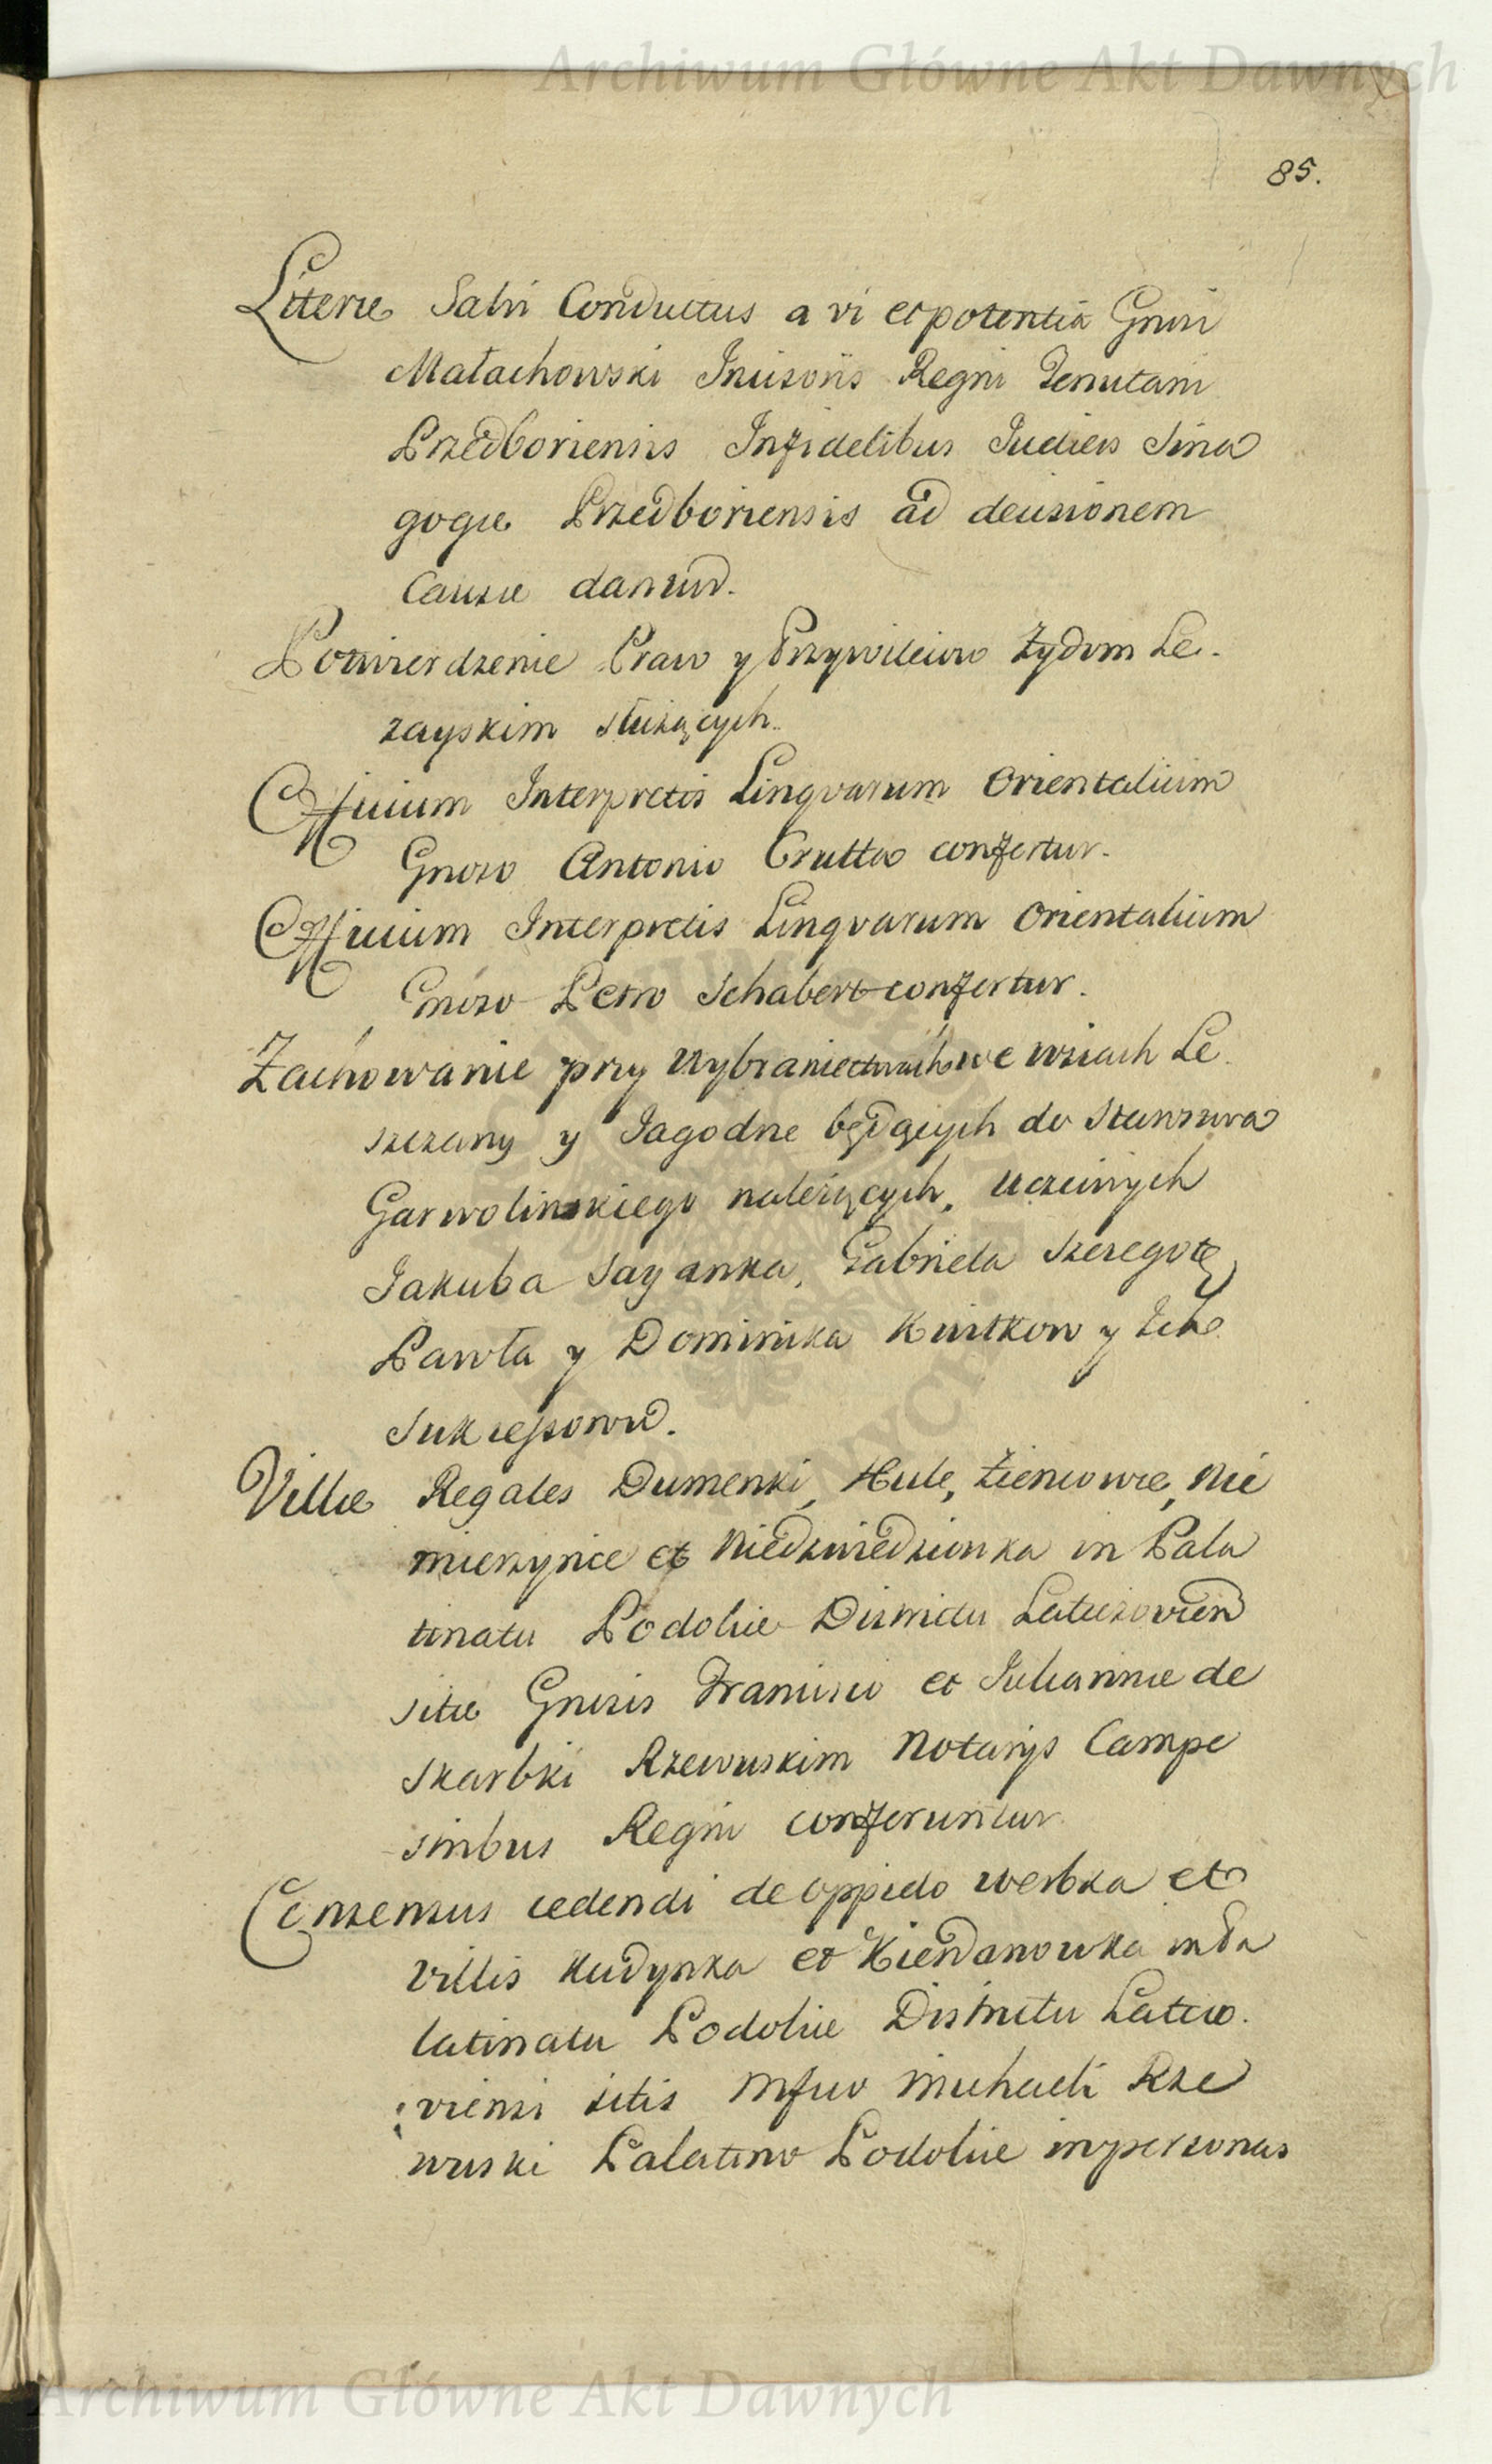 Archiwum Główne Akt Dawnych
85.
Literæ Salvi Conductus a vi et potentia Gnrsi
Małachowski Incisoris Regni Tenutarii
Przedboriensis Infidelibus Judæis Sina
gogæ Przedboriensis ad decisionem
Causæ dantur.
Potwierdzenie Praw y Przywileiow Żydom Le-
zayskim służących.
Officium Interpretis Lingvarum Orientalium
Gnroso Antonio Crutta confertur.
Officium Interpretis Lingvarum Orientalium
Gnroso Petro Schabert confertur.
Zachowanie przy Wybraniectwach we wsiach Le
szczany y Jagodne będących do Starostwa
Garwolinskiego należących, uczciwych
Jakuba Sayanka, Gabriela Szeregotę
Pawła y Dominika Kuitkow y Ich
Sukcessorow.
Villæ Regales Dumenki, Hule, Zieniowce, Nie
mierzynce et Niedzwiedziowka in Pala
tinatu Podoliæ Districtu Laticzovien
sitæ Gnrsis Francisco et Juliannæ de
Skarbki Rzewuskim Notarijs Campe
stribus Regni conferuntur.
Consensus cedendi de oppido Werbka et
villis Kudynka et Kierdanowka in Pa
latinatu Podoliæ Districtu Laticzo.
viensi sitis Mfico Michaeli Rze
wuski Palatino Podoliæ in personas
Archiwum Główne Akt Dawnych